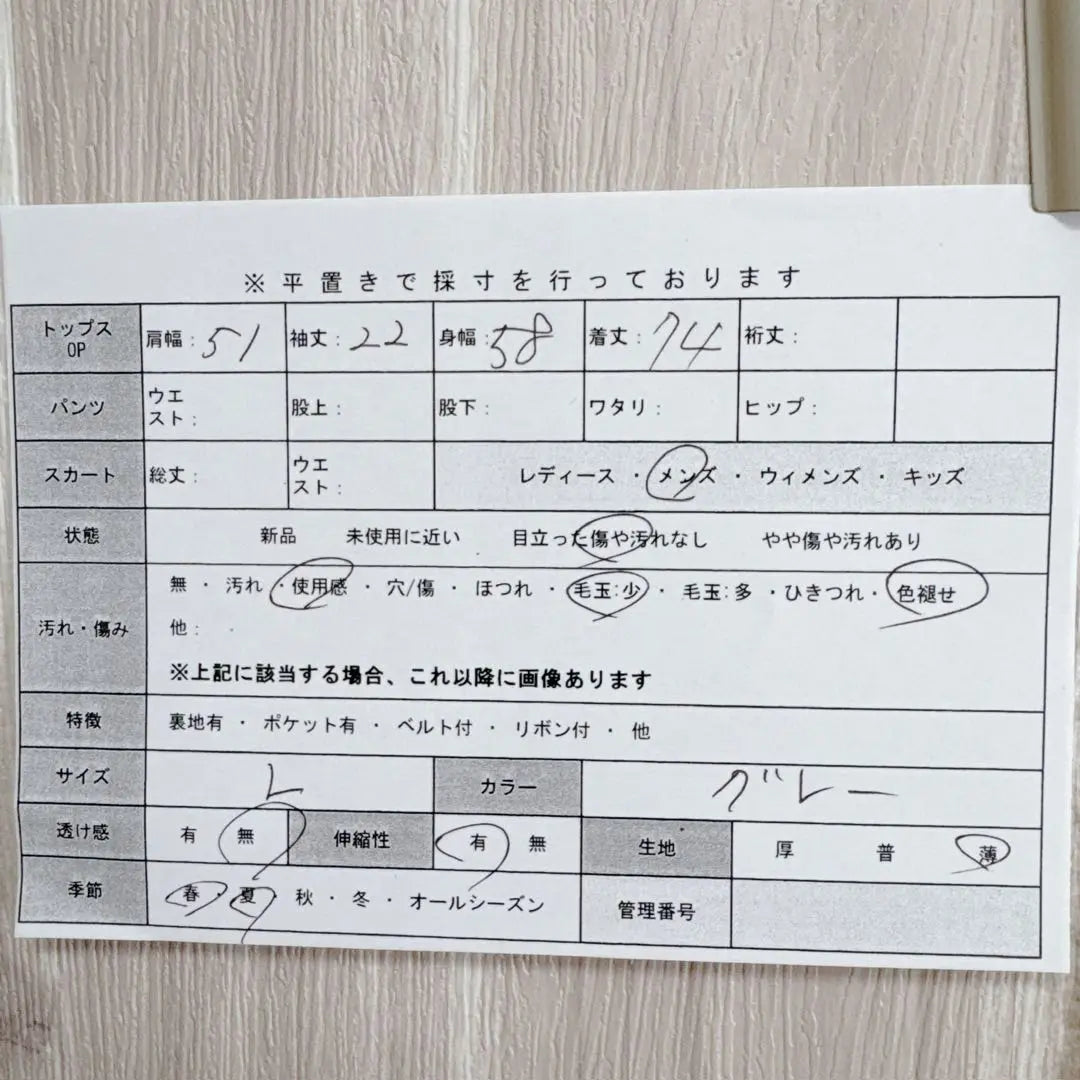 ※平置きで採寸を行っております
トップス OP 肩幅: 51 袖丈: 22 身幅: 58 着丈: 74 裄丈:
パンツ ウエスト: 股上: 股下: ワタリ: ヒップ:
スカート 総丈: ウエスト: レディース ・ メンズ ・ ウィメンズ ・ キッズ
状態 新品 未使用に近い 目立った傷や汚れなし やや傷や汚れあり
汚れ・傷み 無 ・ 汚れ ・ 使用感 ・ 穴/傷 ・ ほつれ ・ 毛玉:少 ・ 毛玉:多 ・ひきつれ・ 色褪せ
他:
※上記に該当する場合、これ以降に画像あります
特徴 裏地有 ・ ポケット有 ・ ベルト付 ・ リボン付 ・ 他
サイズ L カラー グレー
透け感 有 無 伸縮性 有 無 生地 厚 普 薄
季節 春・夏・秋・冬・オールシーズン 管理番号